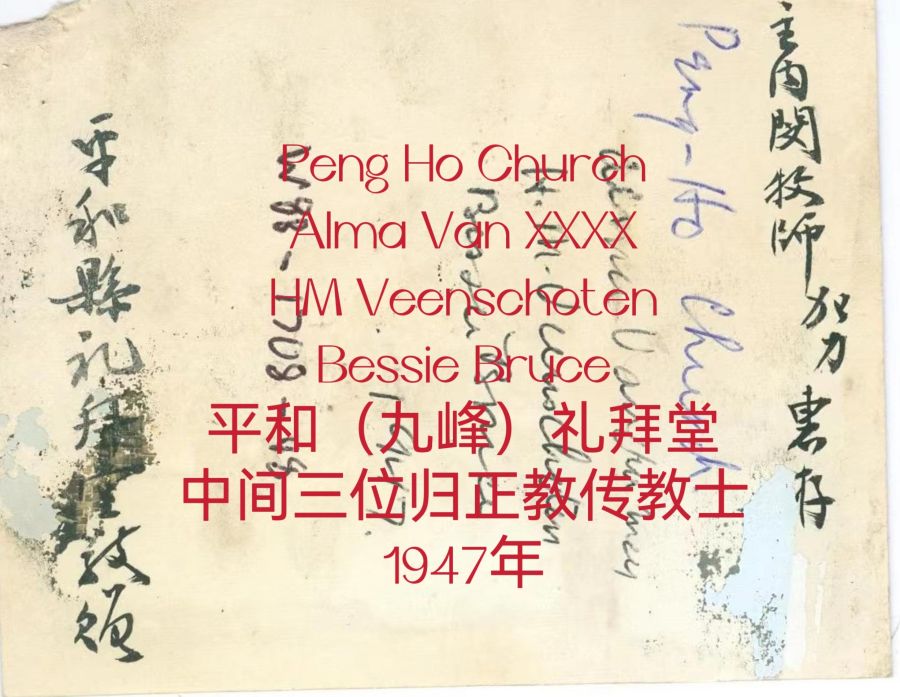 Peng Ho Church
Alma Van XXXX
HM Veenschoten
Bessie Bruce
平和（九峰）礼拜堂
中间三位归正教传教士
1947年
主内閔牧師加力惠存
Peng-Ho Church
H. M. Veenschoten
1947.
平和縣礼拜堂